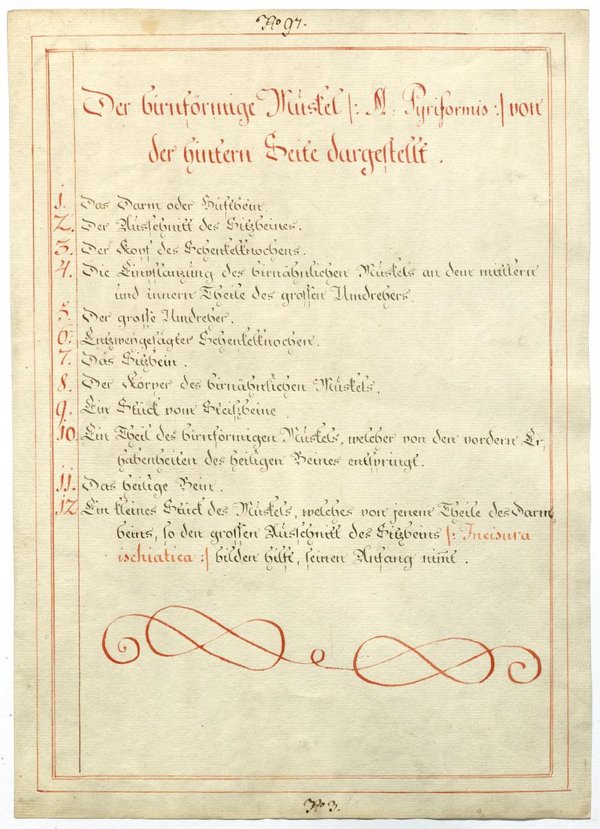 No 97.
Der birnförmige Muskel /: M: Pyriformis :/ von
der hintern Seite dargestellt.
1. Das Darm oder Hüftbein.
2. Der Ausschnitt des Sitzbeines.
3. Der Kopf des Schenkelknochens.
4. Die Einpflanzung des birnähnlichen Muskels an dem mittlern
und innern Theile des grossen Umdrehers.
5. Der grosse Umdreher.
6. Entzweygesägter Schenkelknochen.
7. Das Sitzbein.
8. Der Körper des birnähnlichen Muskels.
9. Ein Stück vom Steißbeine
10. Ein Theil des birnförmigen Muskels, welcher von den vordern Er-
habenheiten des heiligen Beines entspringt.
11. Das heilige Bein.
12 Ein kleines Stück des Muskels, welches von jenem Theile des Darm-
beins, so den grossen Ausschnitt des Sitzbeins /: Incisura
ischiatica :/ bilden hilft, seinen Anfang nimt.
No 3.